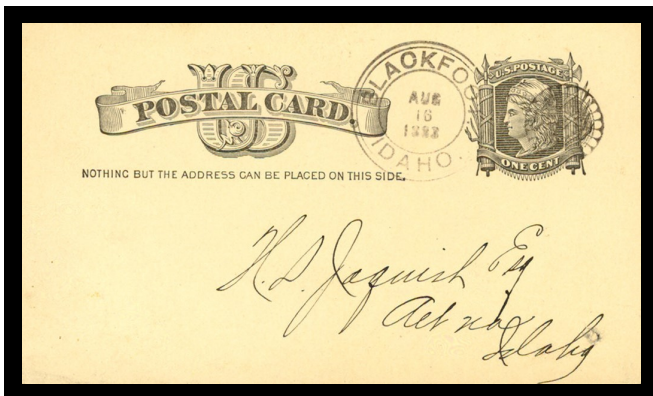 US
POSTAL CARD.
NOTHING BUT THE ADDRESS CAN BE PLACED ON THIS SIDE.
BLACKFO
AUG
16
IDAHO
U.S. POSTAGE
ONE CENT
H. S. Jaquish Esq
Aetna
Idaho